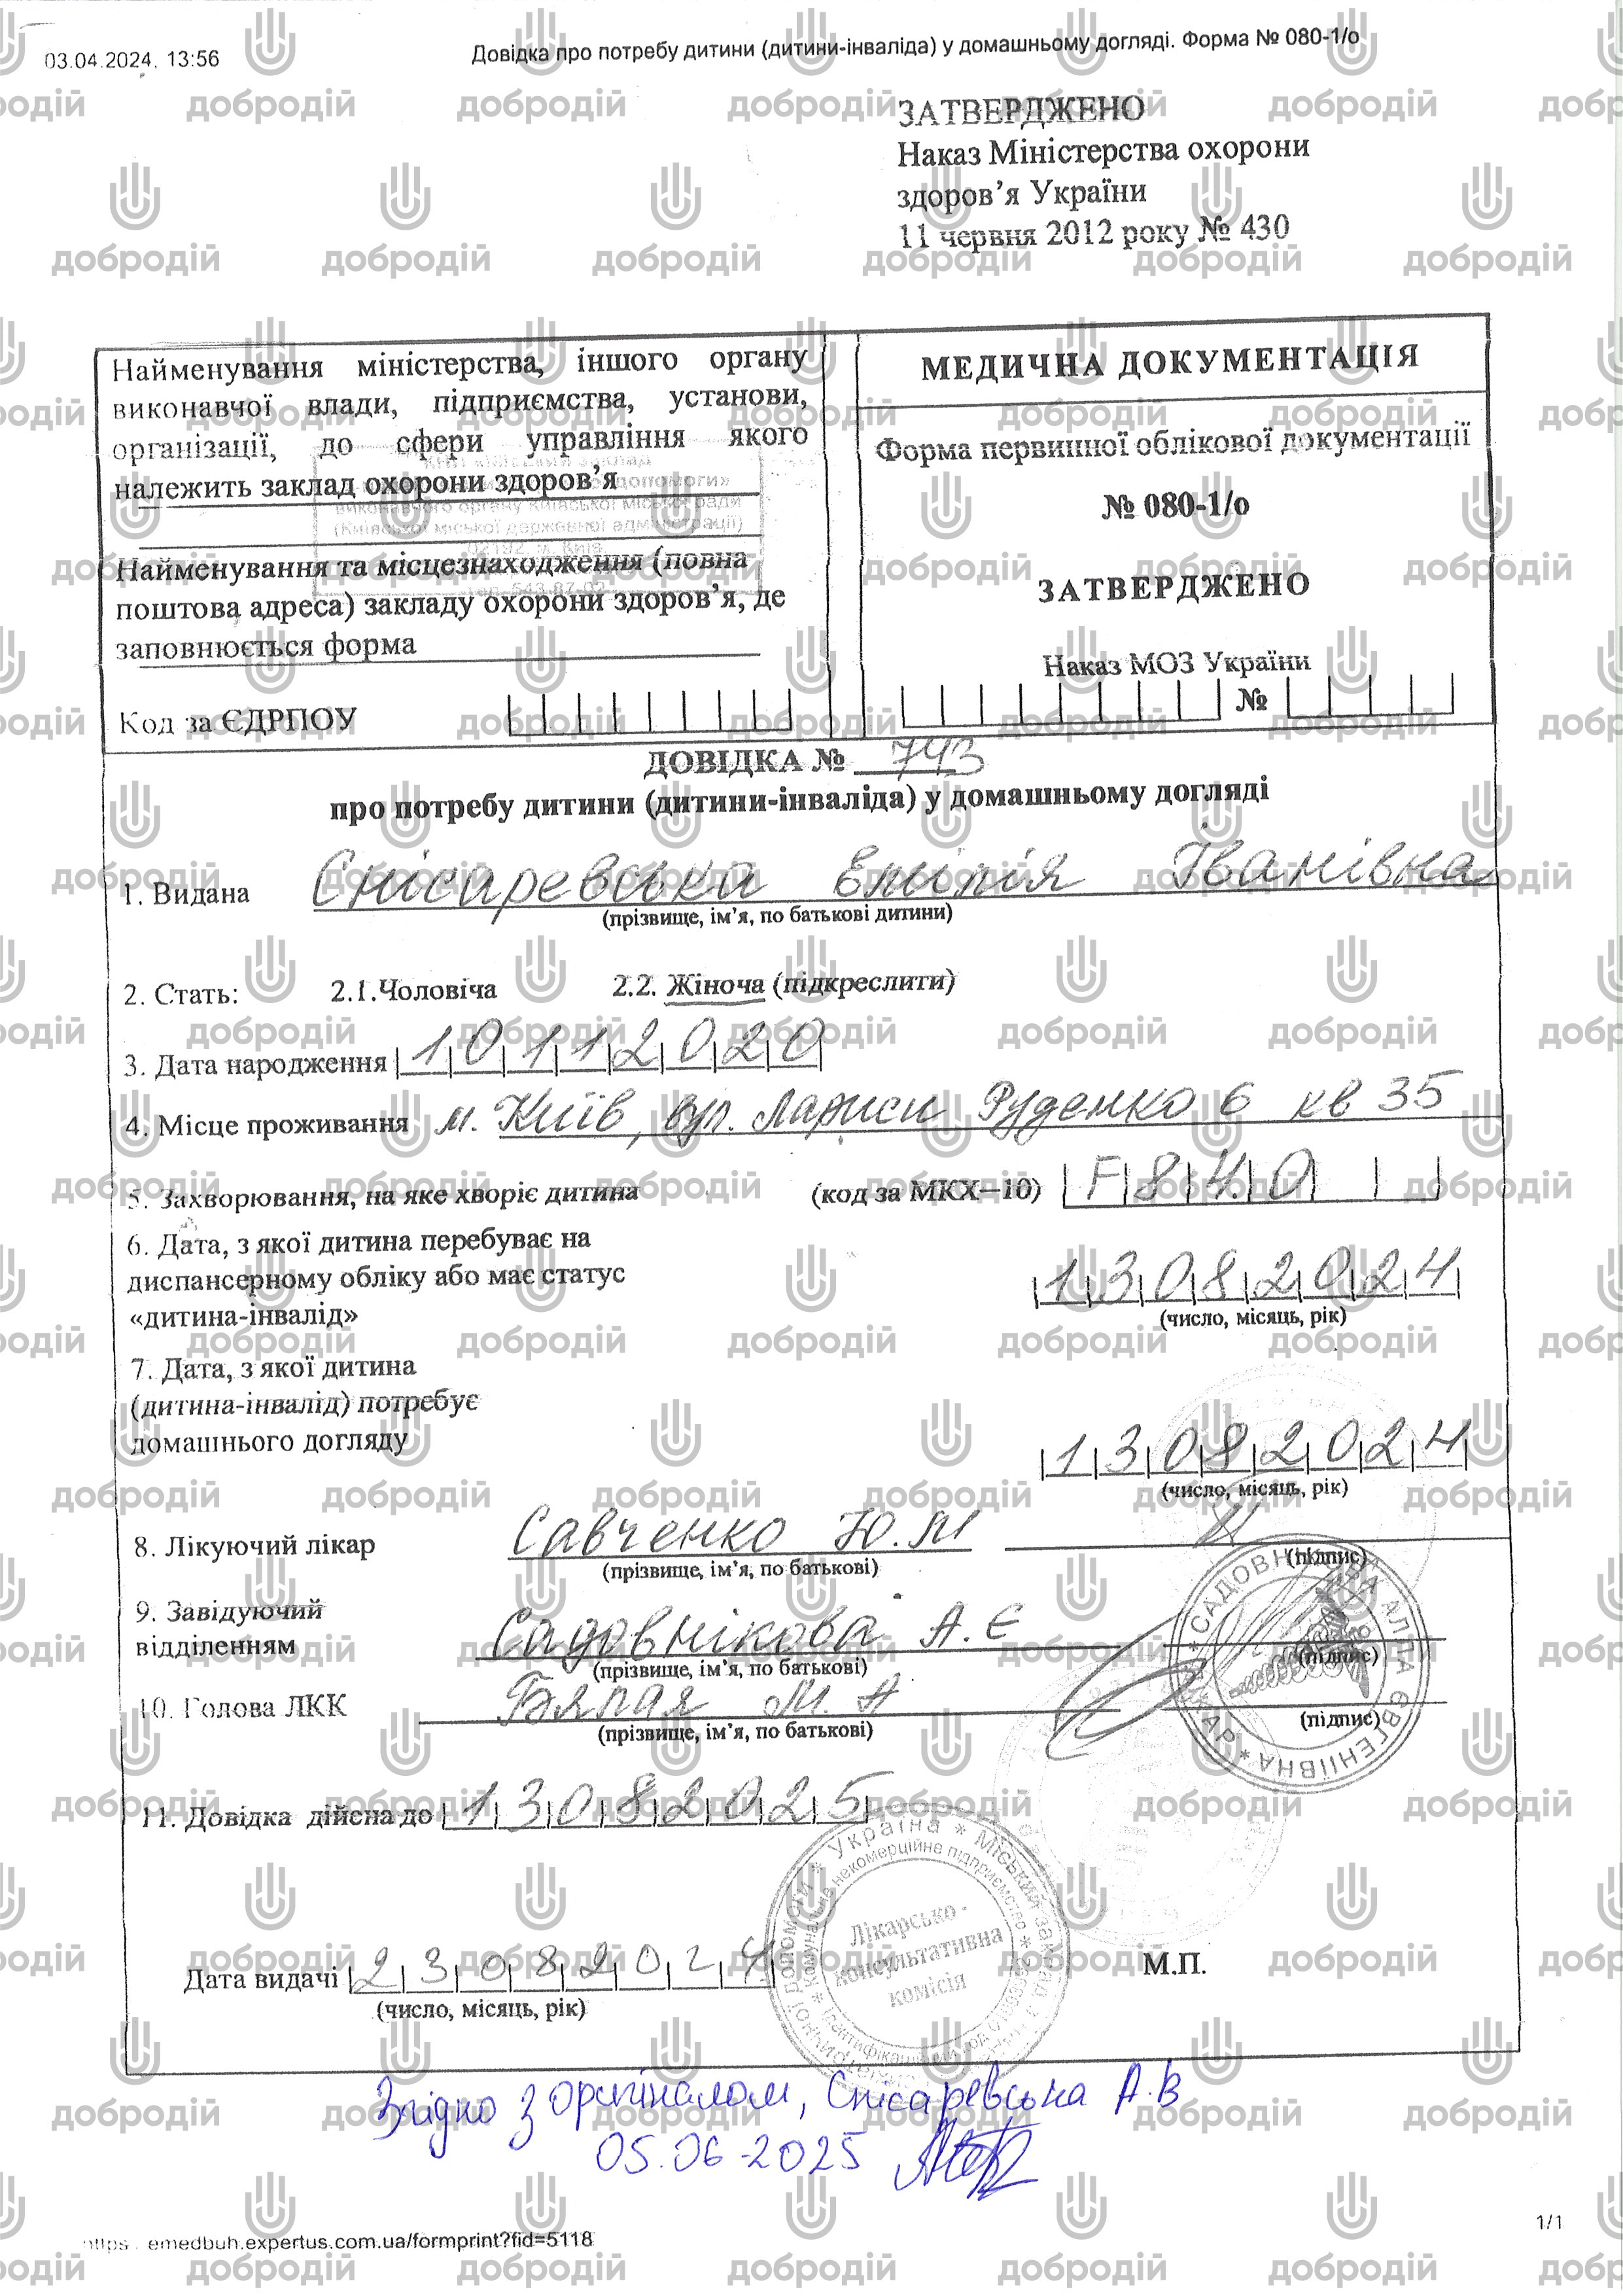 03.04.2024, 13:56
Довідка про потребу дитини (дитини-інваліда) у домашньому догляді. Форма № 080-1/о
ЗАТВЕРДЖЕНО
Наказ Міністерства охорони
здоров’я України
11 червня 2012 року № 430
Найменування міністерства, іншого органу
виконавчої влади, підприємства, установи,
організації, до сфери управління якого
належить заклад охорони здоров’я
допомоги»
виконавчого органу Київської міської ради
(Київської міської державної адміністрації)
02192, м. Київ
Найменування та місцезнаходження (повна
поштова адреса) закладу охорони здоров’я, де
заповнюється форма
Код за ЄДРПОУ
МЕДИЧНА ДОКУМЕНТАЦІЯ
Форма первинної облікової документації
№ 080-1/о
ЗАТВЕРДЖЕНО
Наказ МОЗ України
№
ДОВІДКА № 743
про потребу дитини (дитини-інваліда) у домашньому догляді
1. Видана Снісаревська Емілія Іванівна
(прізвище, ім’я, по батькові дитини)
2. Стать: 2.1.Чоловіча 2.2. Жіноча (підкреслити)
3. Дата народження 10112020
4. Місце проживання м. Київ, вул. Лариси Руденко 6 кв 35
5. Захворювання, на яке хворіє дитина (код за МКХ–10) F84.0
6. Дата, з якої дитина перебуває на
диспансерному обліку або має статус
«дитина-інвалід» 13082024
(число, місяць, рік)
7. Дата, з якої дитина
(дитина-інвалід) потребує
домашнього догляду 13082024
(число, місяць, рік)
8. Лікуючий лікар Савченко Ю.М
(прізвище, ім’я, по батькові) (підпис)
9. Завідуючий
відділенням Садовнікова А.Є
(прізвище, ім’я, по батькові) (підпис)
10. Голова ЛКК М. А
(прізвище, ім’я, по батькові) (підпис)
* САДОВНІКОВА АЛЛА ЄВГЕНІЇВНА * ЛІКАР
11. Довідка дійсна до 13082025
* Україна * Міський заклад
Комунальне некомерційне підприємство
Лікарсько -
консультативна
комісія
Дата видачі 23082024
М.П.
(число, місяць, рік)
Згідно з оригіналом, Снісаревська А.В
05.06.2025
emedbuh.expertus.com.ua/formprint?fid=5118
1/1
добродій